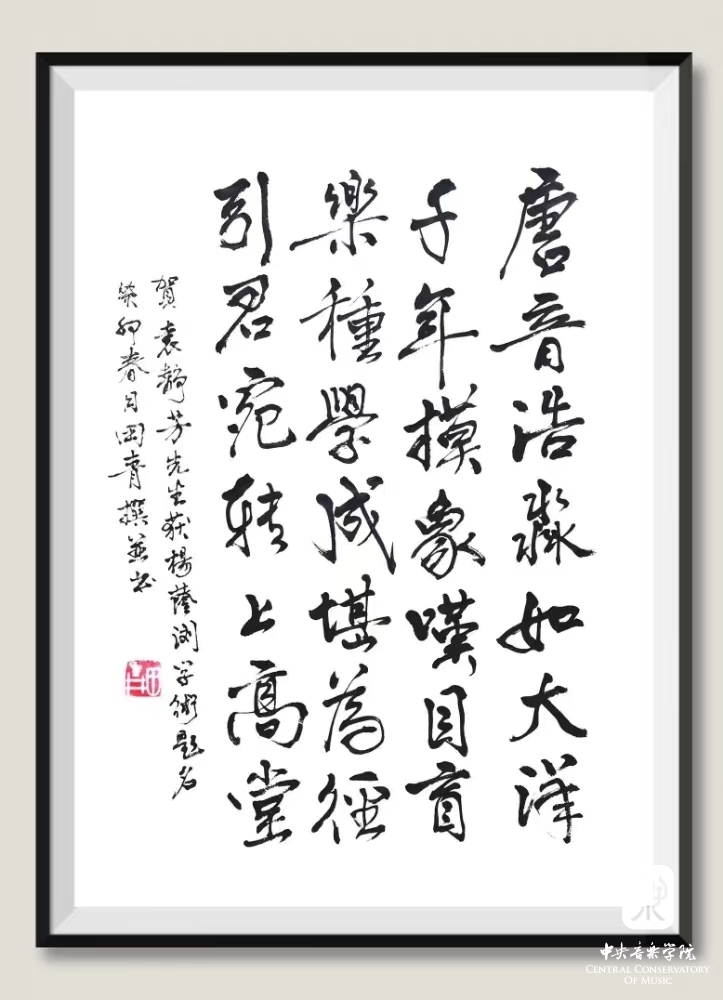 唐音浩淼如大洋
千年摸象嘆目盲
樂種學成堪為徑
引君宛轉上高堂
賀袁靜芳先生获楊蔭浏学術題名
癸卯春日田青撰並书
田青
中央音乐学院
CENTRAL CONSERVATORY
OF MUSIC